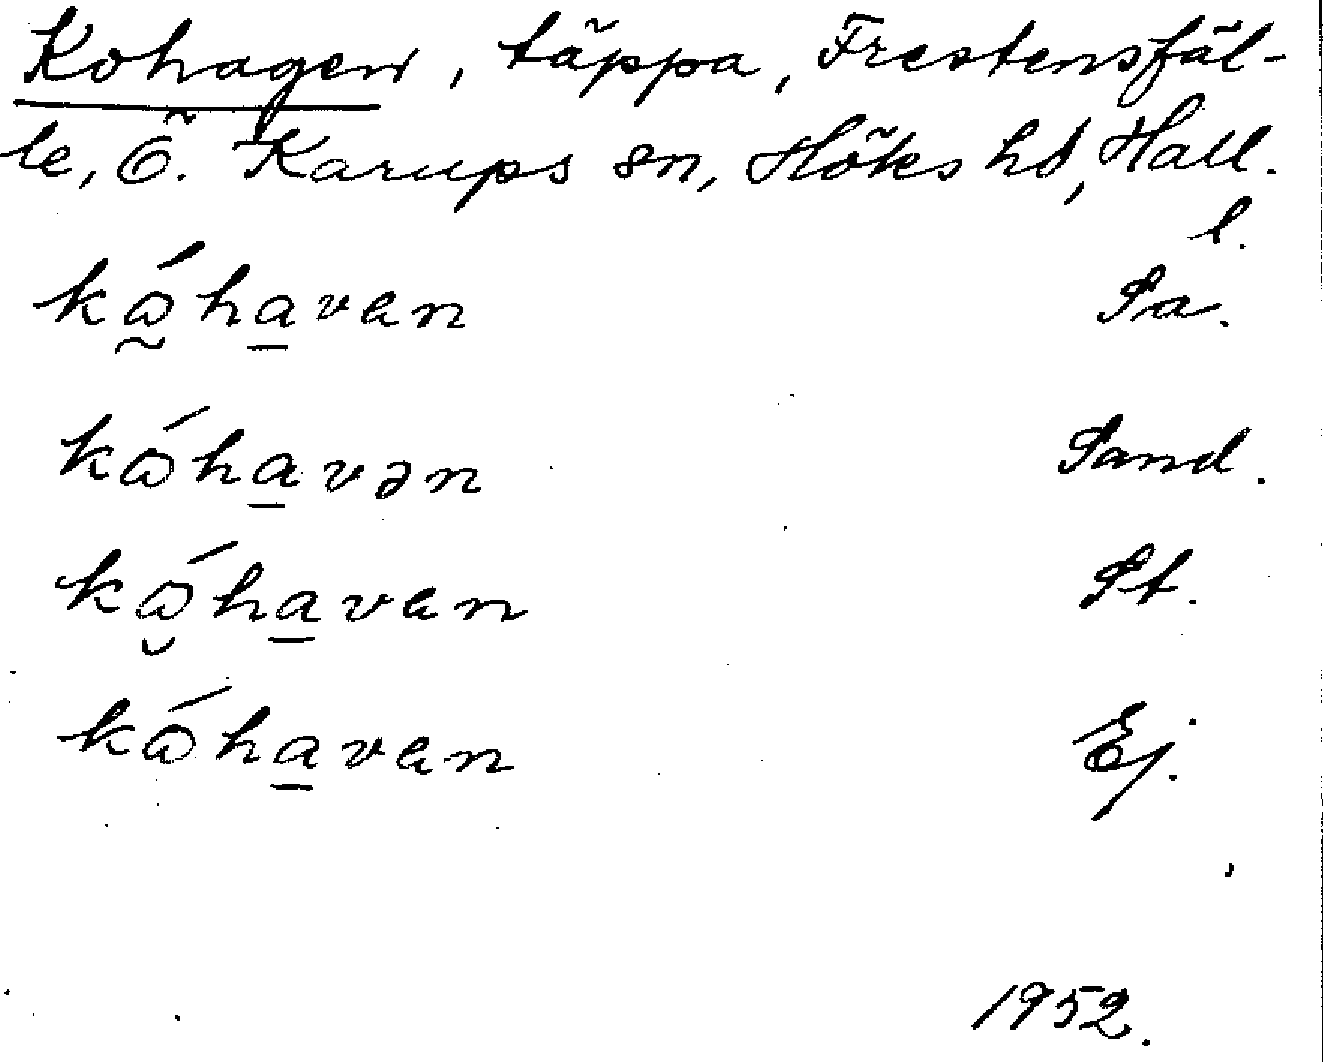 Kohagen, täppa, Frestensfäl-
le, Ö. Karups sn, Höks hd, Hall.
l.
kɷ̰́ha̲van Sa.
kɷ́ha̲vən Sand.
kɷ̮́ha̲van St.
kɷ́ha̲van Ej.
1952.